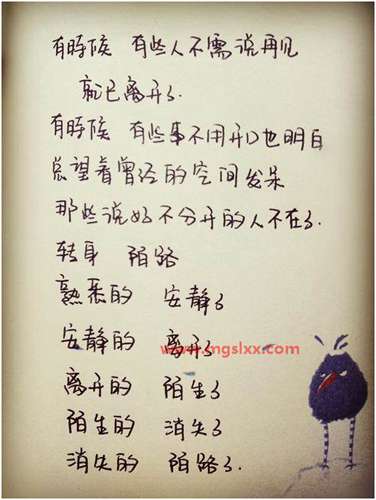 有時候 有些人不需说再见
就已离开了
有時候 有些事不用开口也明白
总望着曾经的空间发呆
那些说好不分开的人不在了.
转身 陌路
熟悉的 安静了
安静的 离开了
www.mgslxx.com
离开的 陌生了
陌生的 消失了
消失的 陌路了.